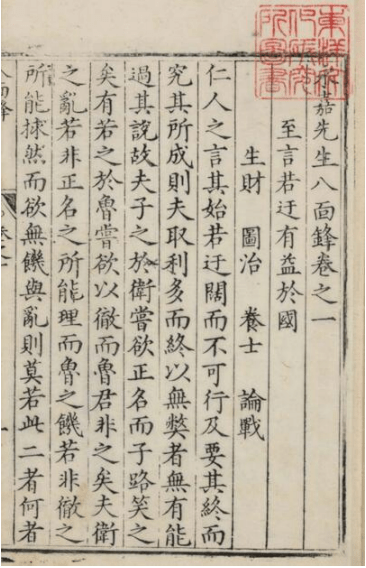 永嘉先生八面鋒卷之一
至言若迂有益於國
生財 圖治 養士 論戰
仁人之言其始若迂闊而不可行及要其終而
究其所成則夫取利多而終以無弊者無有能
過其說故夫子之於衛嘗欲正名而子路笑之
矣有若之於魯嘗欲以徹而魯君非之矣夫衛
之亂若非正名之所能理而魯之饑若非徹之
所能捄然而欲無饑與亂則莫若此二者何者